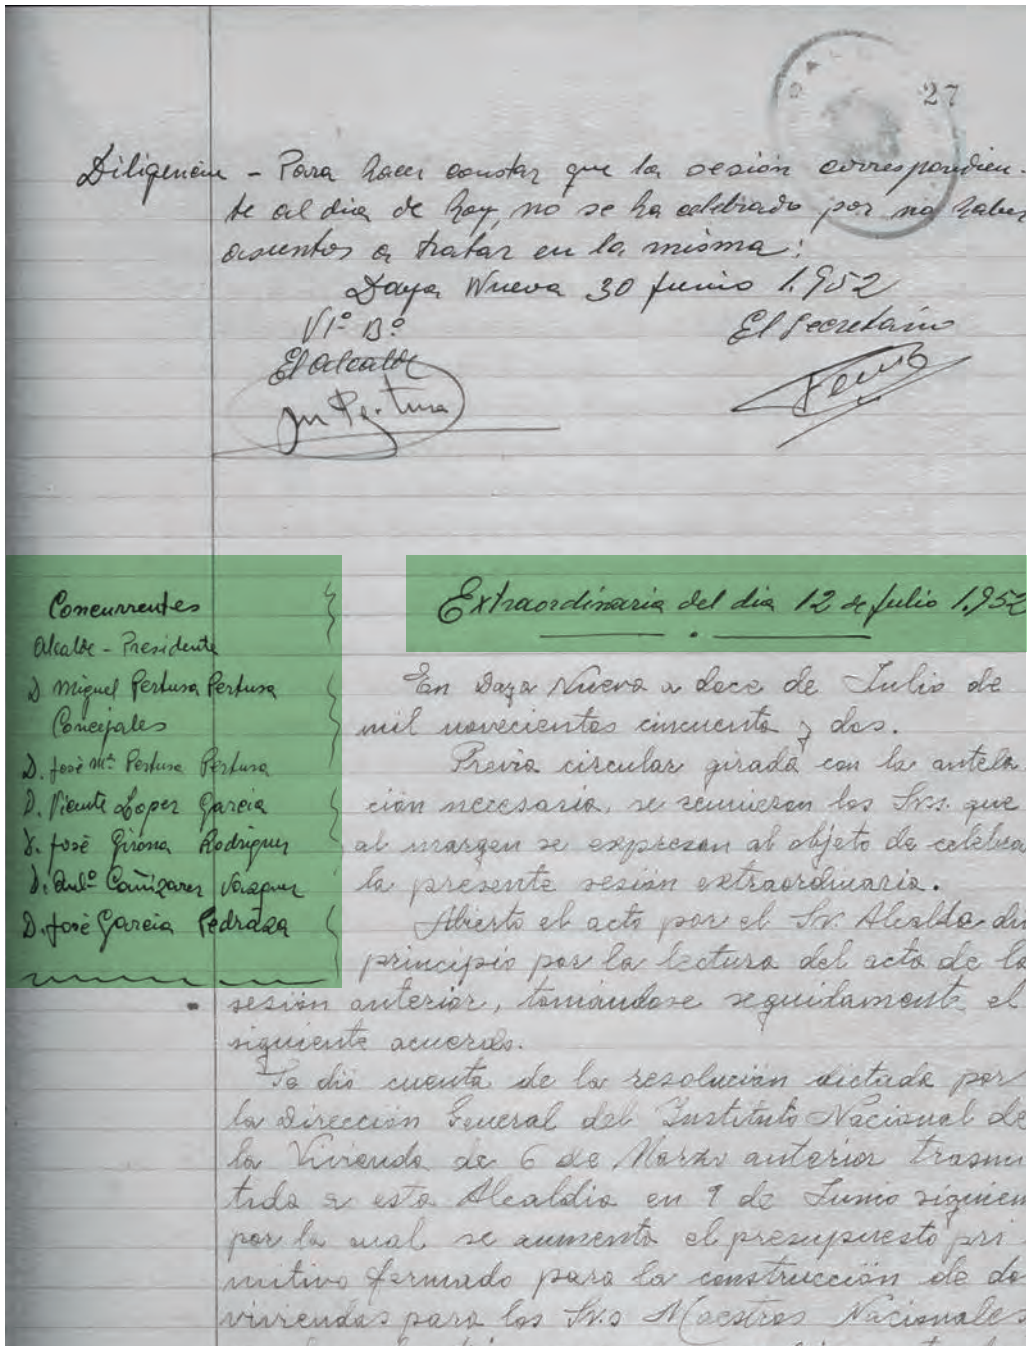 27
Diligencia - Para hacer constar que la sesión correspondien-
te al dia de hoy, no se ha celebrado por no haber
asuntos a tratar en la misma:
Daya Nueva 30 Junio 1.952
Vº Bº
El Alcalde
El Secretario
Extraordinaria del dia 12 de Julio 1.952
Concurrentes
Alcalde - Presidente
D Miguel Pertusa Pertusa
Concejales
D. José Mª Pertusa Pertusa
D. Vicente Lopez Garcia
D. José Girona Rodriguez
D. Cañizares Vazquez
D. José Garcia Pedraza
En Daya Nueva a doce de Julio de
mil novecientos cincuenta y dos.
Previa circular girada con la antela
ción necesaria, se reunieron los Srs. que
al margen se expresan al objeto de celebra
la presente sesión extraordinaria.
Abierto el acto por el Sr. Alcalde dio
principio por la lectura del acta de la
sesión anterior, tomándose seguidamente el
siguiente acuerdo.
Se dió cuenta de la resolución dictada por
la Dirección General del Instituto Nacional de
la Vivienda de 6 de Marzo anterior trasmi
tida a esta Alcaldia en 9 de Junio siguien
por la cual se aumenta el presupuesto pri
mitivo formado para la construcción de do
viviendas para los Sr.s Maestros Nacionales